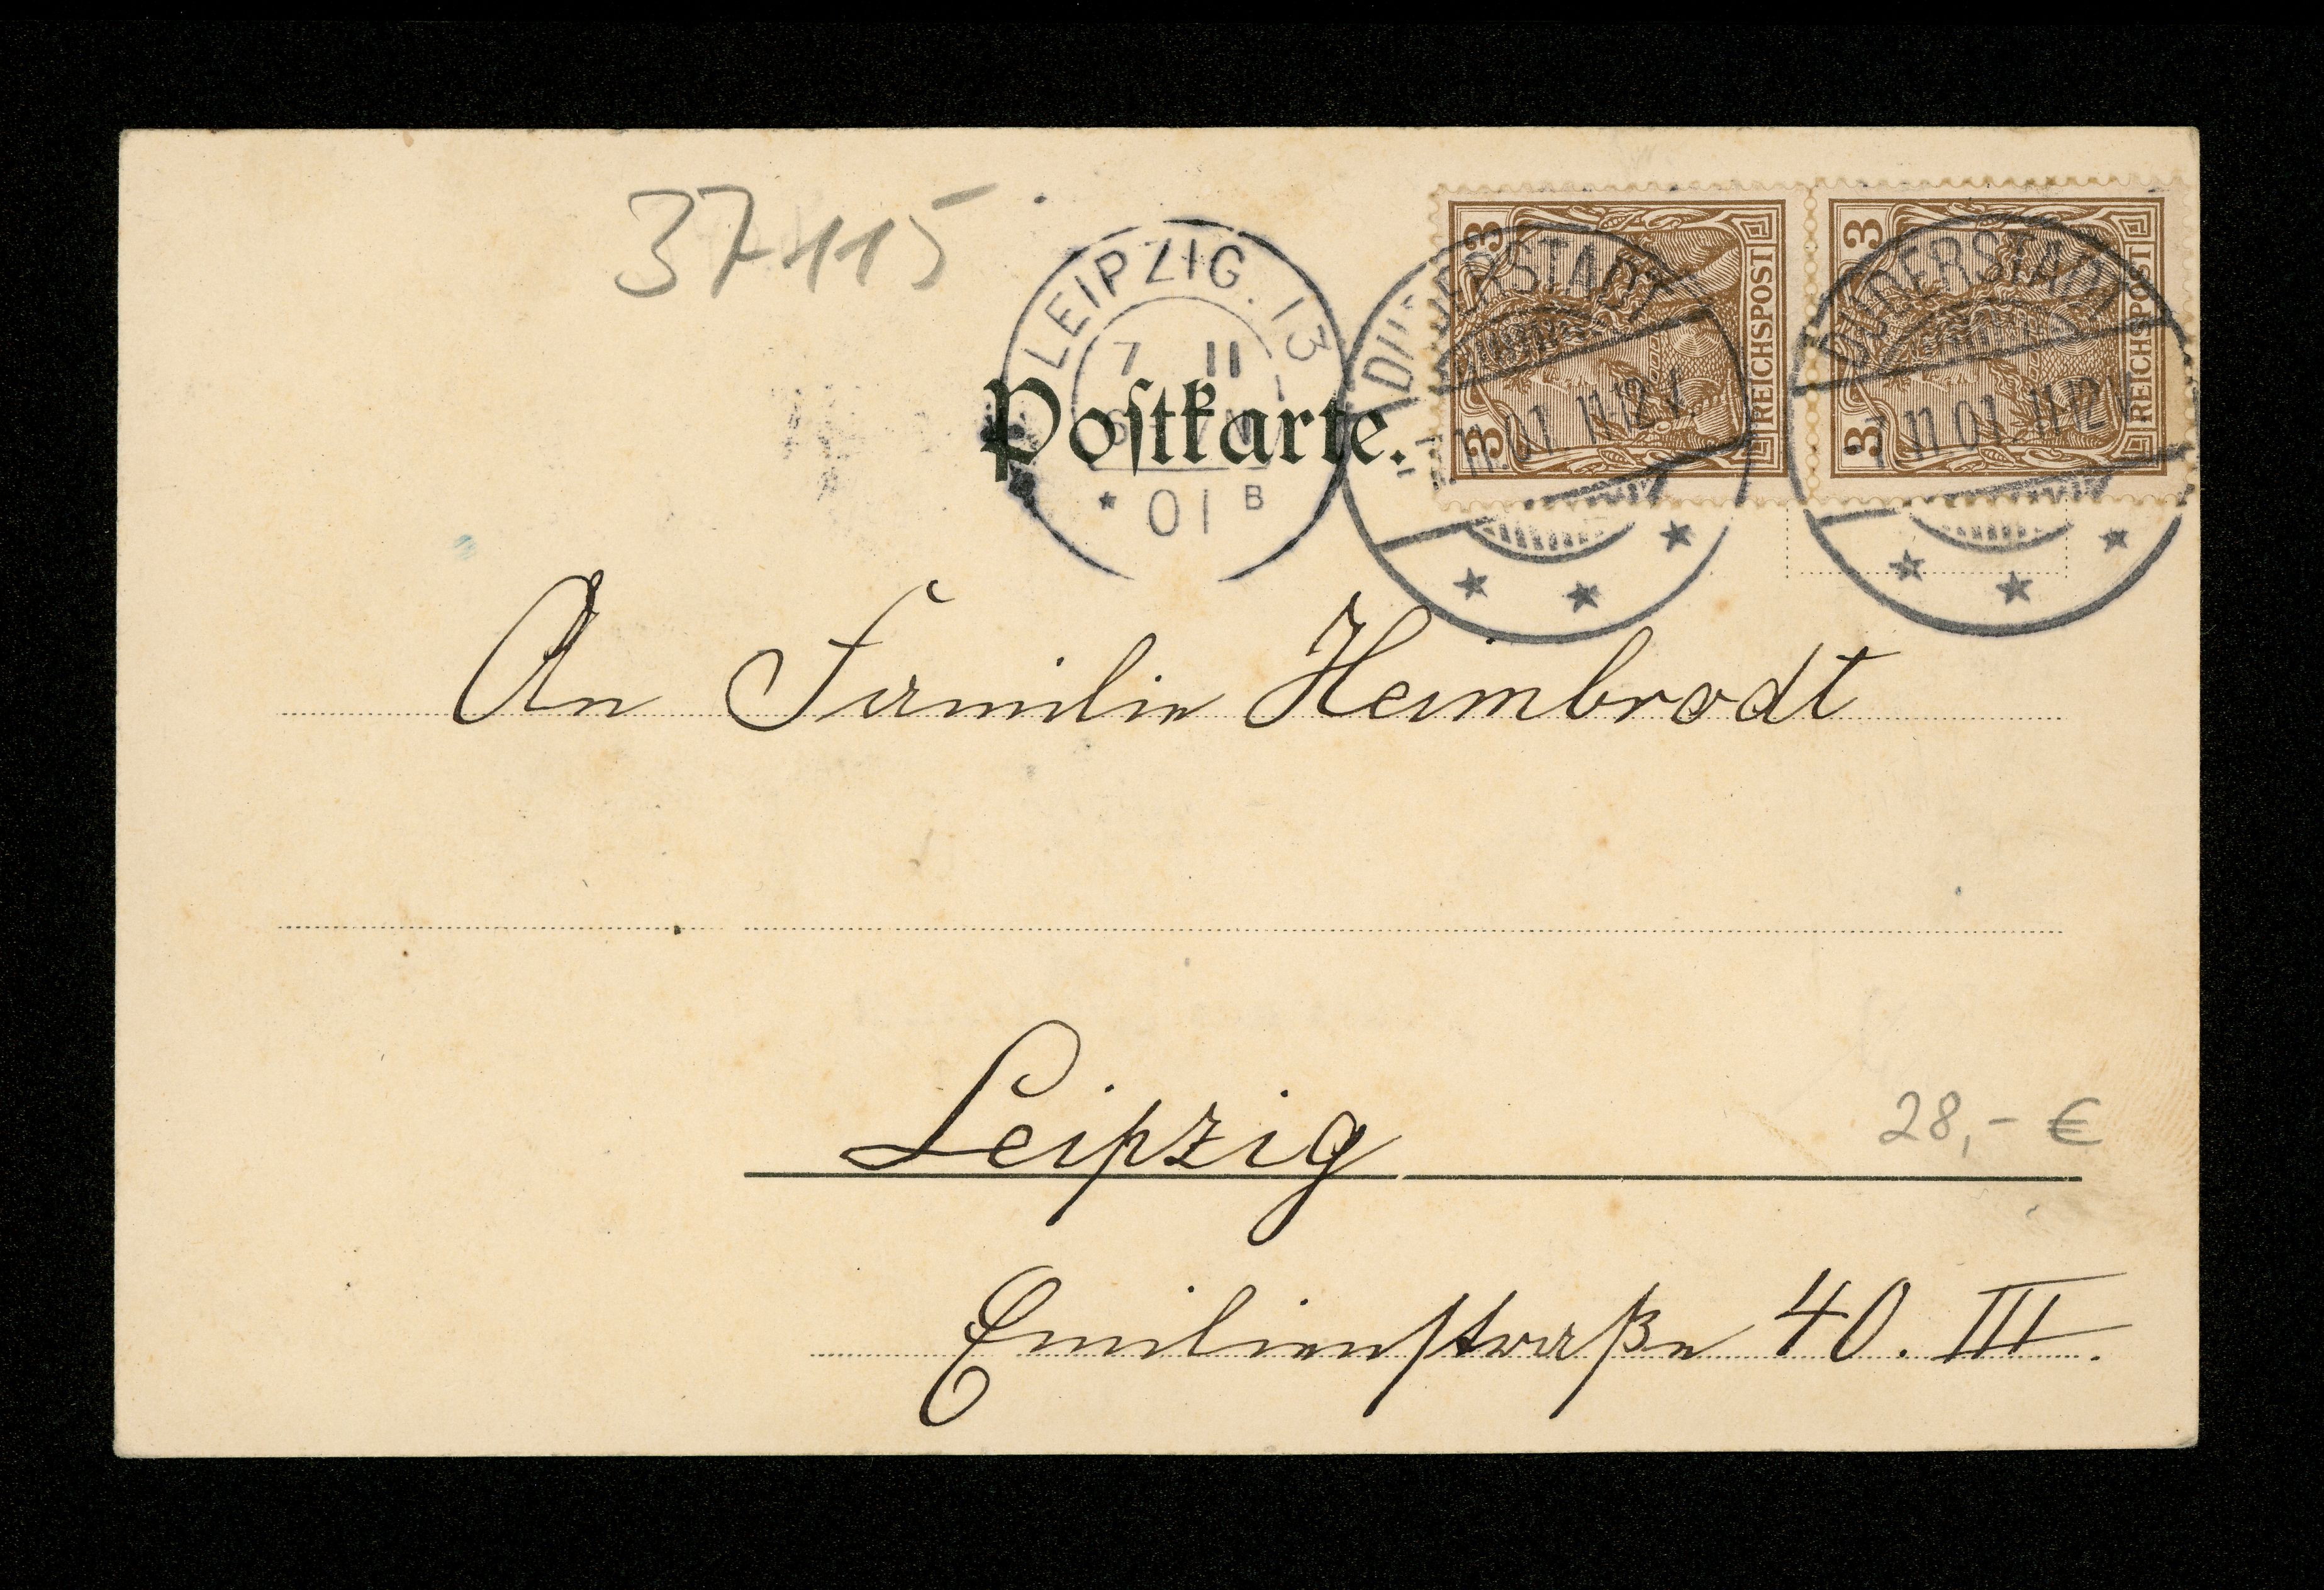 37115
3 3 REICHSPOST
3 3 REICHSPOST
DUDERSTADT
11.01. 11-12 V.
DUDERSTADT
7.11.01. 11-12 V.
LEIPZIG. 13
7 11
* 01 B
Postkarte.
An Familie Heimbrodt
Leipzig
28,- €
Emilienstraße 40. III.